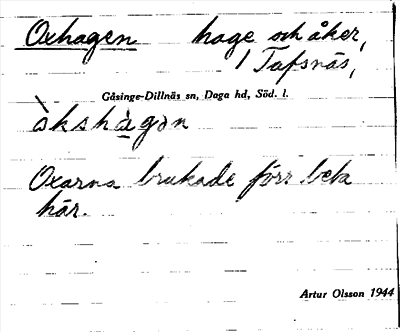 Oxhagen hage och åker,
1 Tafsnäs,
Gåsinge-Dillnäs sn, Daga hd, Söd. l.
òkshàgan
Oxarna brukade förr beta
här.
Artur Olsson 1944